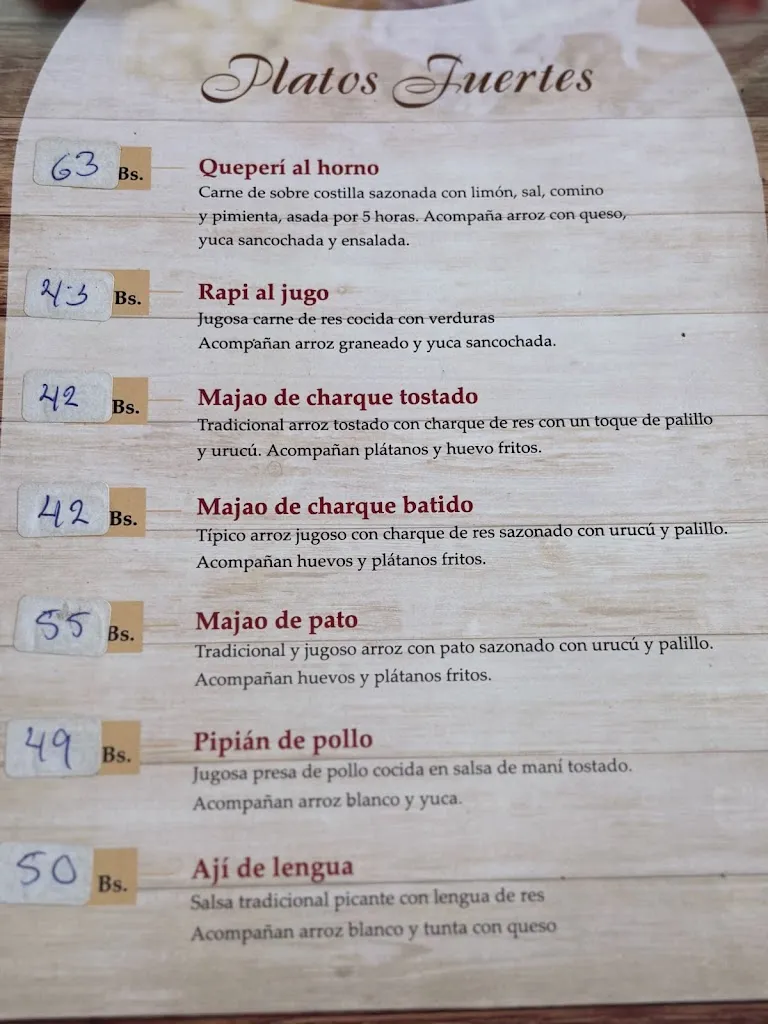 Platos Fuertes
63 Bs. Queperí al horno
Carne de sobre costilla sazonada con limón, sal, comino
y pimienta, asada por 5 horas. Acompaña arroz con queso,
yuca sancochada y ensalada.
43 Bs. Rapi al jugo
Jugosa carne de res cocida con verduras
Acompañan arroz graneado y yuca sancochada.
42 Bs. Majao de charque tostado
Tradicional arroz tostado con charque de res con un toque de palillo
y urucú. Acompañan plátanos y huevo fritos.
42 Bs. Majao de charque batido
Típico arroz jugoso con charque de res sazonado con urucú y palillo.
Acompañan huevos y plátanos fritos.
55 Bs. Majao de pato
Tradicional y jugoso arroz con pato sazonado con urucú y palillo.
Acompañan huevos y plátanos fritos.
49 Bs. Pipián de pollo
Jugosa presa de pollo cocida en salsa de maní tostado.
Acompañan arroz blanco y yuca.
50 Bs. Ají de lengua
Salsa tradicional picante con lengua de res
Acompañan arroz blanco y tunta con queso